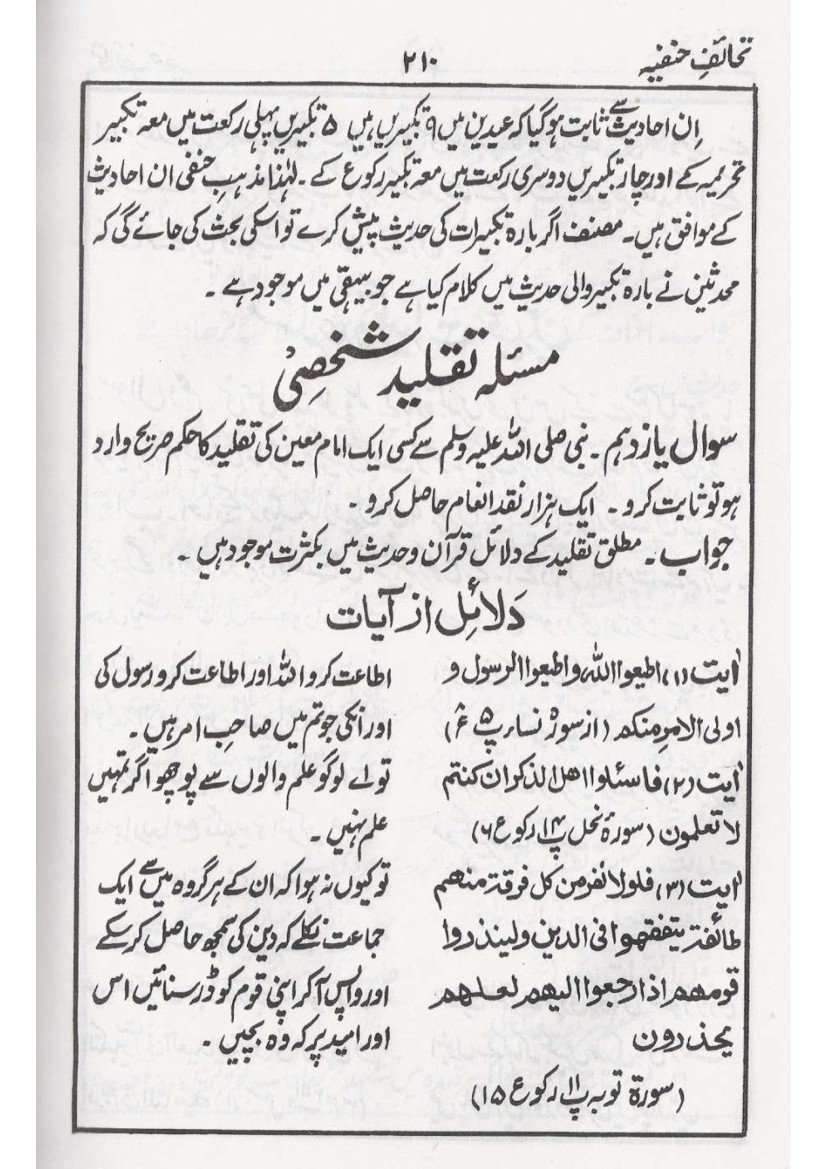 تحائفِ حنفیہ
۲۱۰
اِن احادیث سے ثابت ہوگیا کہ عیدین میں ۹ تکبیریں ہیں ۵ تکبیریں پہلی رکعت میں معہ تکبیر
تحریمہ کے اور چار تکبیریں دوسری رکعت میں معہ تکبیر رکوع کے۔ لہٰذا مذہبِ حنفی ان احادیث
کے موافق ہیں۔ مصنف اگر بارہ تکبیرات کی حدیث پیش کرے تو اسکی بحث کی جائے گی کہ
محدثین نے بارہ تکبیر والی حدیث میں کلام کیا ہے جو بیہقی میں موجود ہے۔
مسئلہ تقلید شخصِی
سوال یازدہم۔ نبی صلی اللہ علیہ وسلم سے کسی ایک امام معین کی تقلید کا حکم صریح وارد
ہو تو ثابت کرو۔ ایک ہزار نقد انعام حاصل کرو۔
جواب۔ مطلق تقلید کے دلائل قرآن و حدیث میں بکثرت موجود ہیں۔
دَلائِل از آیات
اٰیت (۱) اطیعوا اللہ و اطیعوا الرسول و
اولی الامر منکم (از سورۂ نساء پ ۵ ع ۶)
اٰیت (۲) فاسئلوا اھل الذکر ان کنتم
لا تعلمون (سورۂ نحل پ ۱۴ رکوع ۶)
اٰیت (۳) فلولا نفر من کل فرقۃ منھم
طائفۃ یتفقھوا فی الدین ولینذروا
قومھم اذا رجعوا الیھم لعلھم
یحذرون
(سورۃ توبہ پ ۱۱ رکوع ۱۵)
اطاعت کرو اللہ اور اطاعت کرو رسول کی
اور انکی جو تم میں صاحبِ امر ہیں۔
تو اے لوگو علم والوں سے پوچھو اگر تمہیں
علم نہیں۔
تو کیوں نہ ہوا کہ ان کے ہر گروہ میں سے ایک
جماعت نکلے کہ دین کی سمجھ حاصل کر سکے
اور واپس آکر اپنی قوم کو ڈر سنائیں اس
اور امید پر کہ وہ بچیں۔